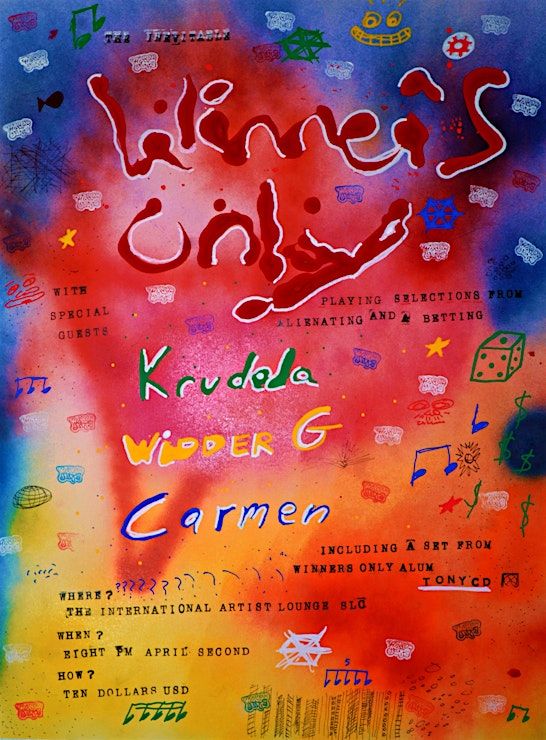 THE INEVITABLE
Winner's
only
WITH
SPECIAL
GUESTS
PLAYING SELECTIONS FROM
ALIENATING AND A BETTING
Krudela
WIDDER G
Carmen
INCLUDING A SET FROM
WINNERS ONLY ALUM
TONY CD
WHERE?
THE INTERNATIONAL ARTIST LOUNGE SLC
WHEN?
EIGHT PM APRIL SECOND
HOW?
TEN DOLLARS USD